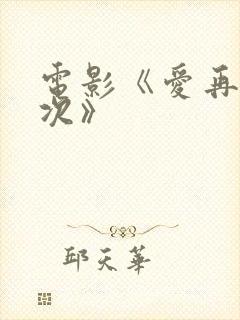 電影《愛再
次》
邱天華